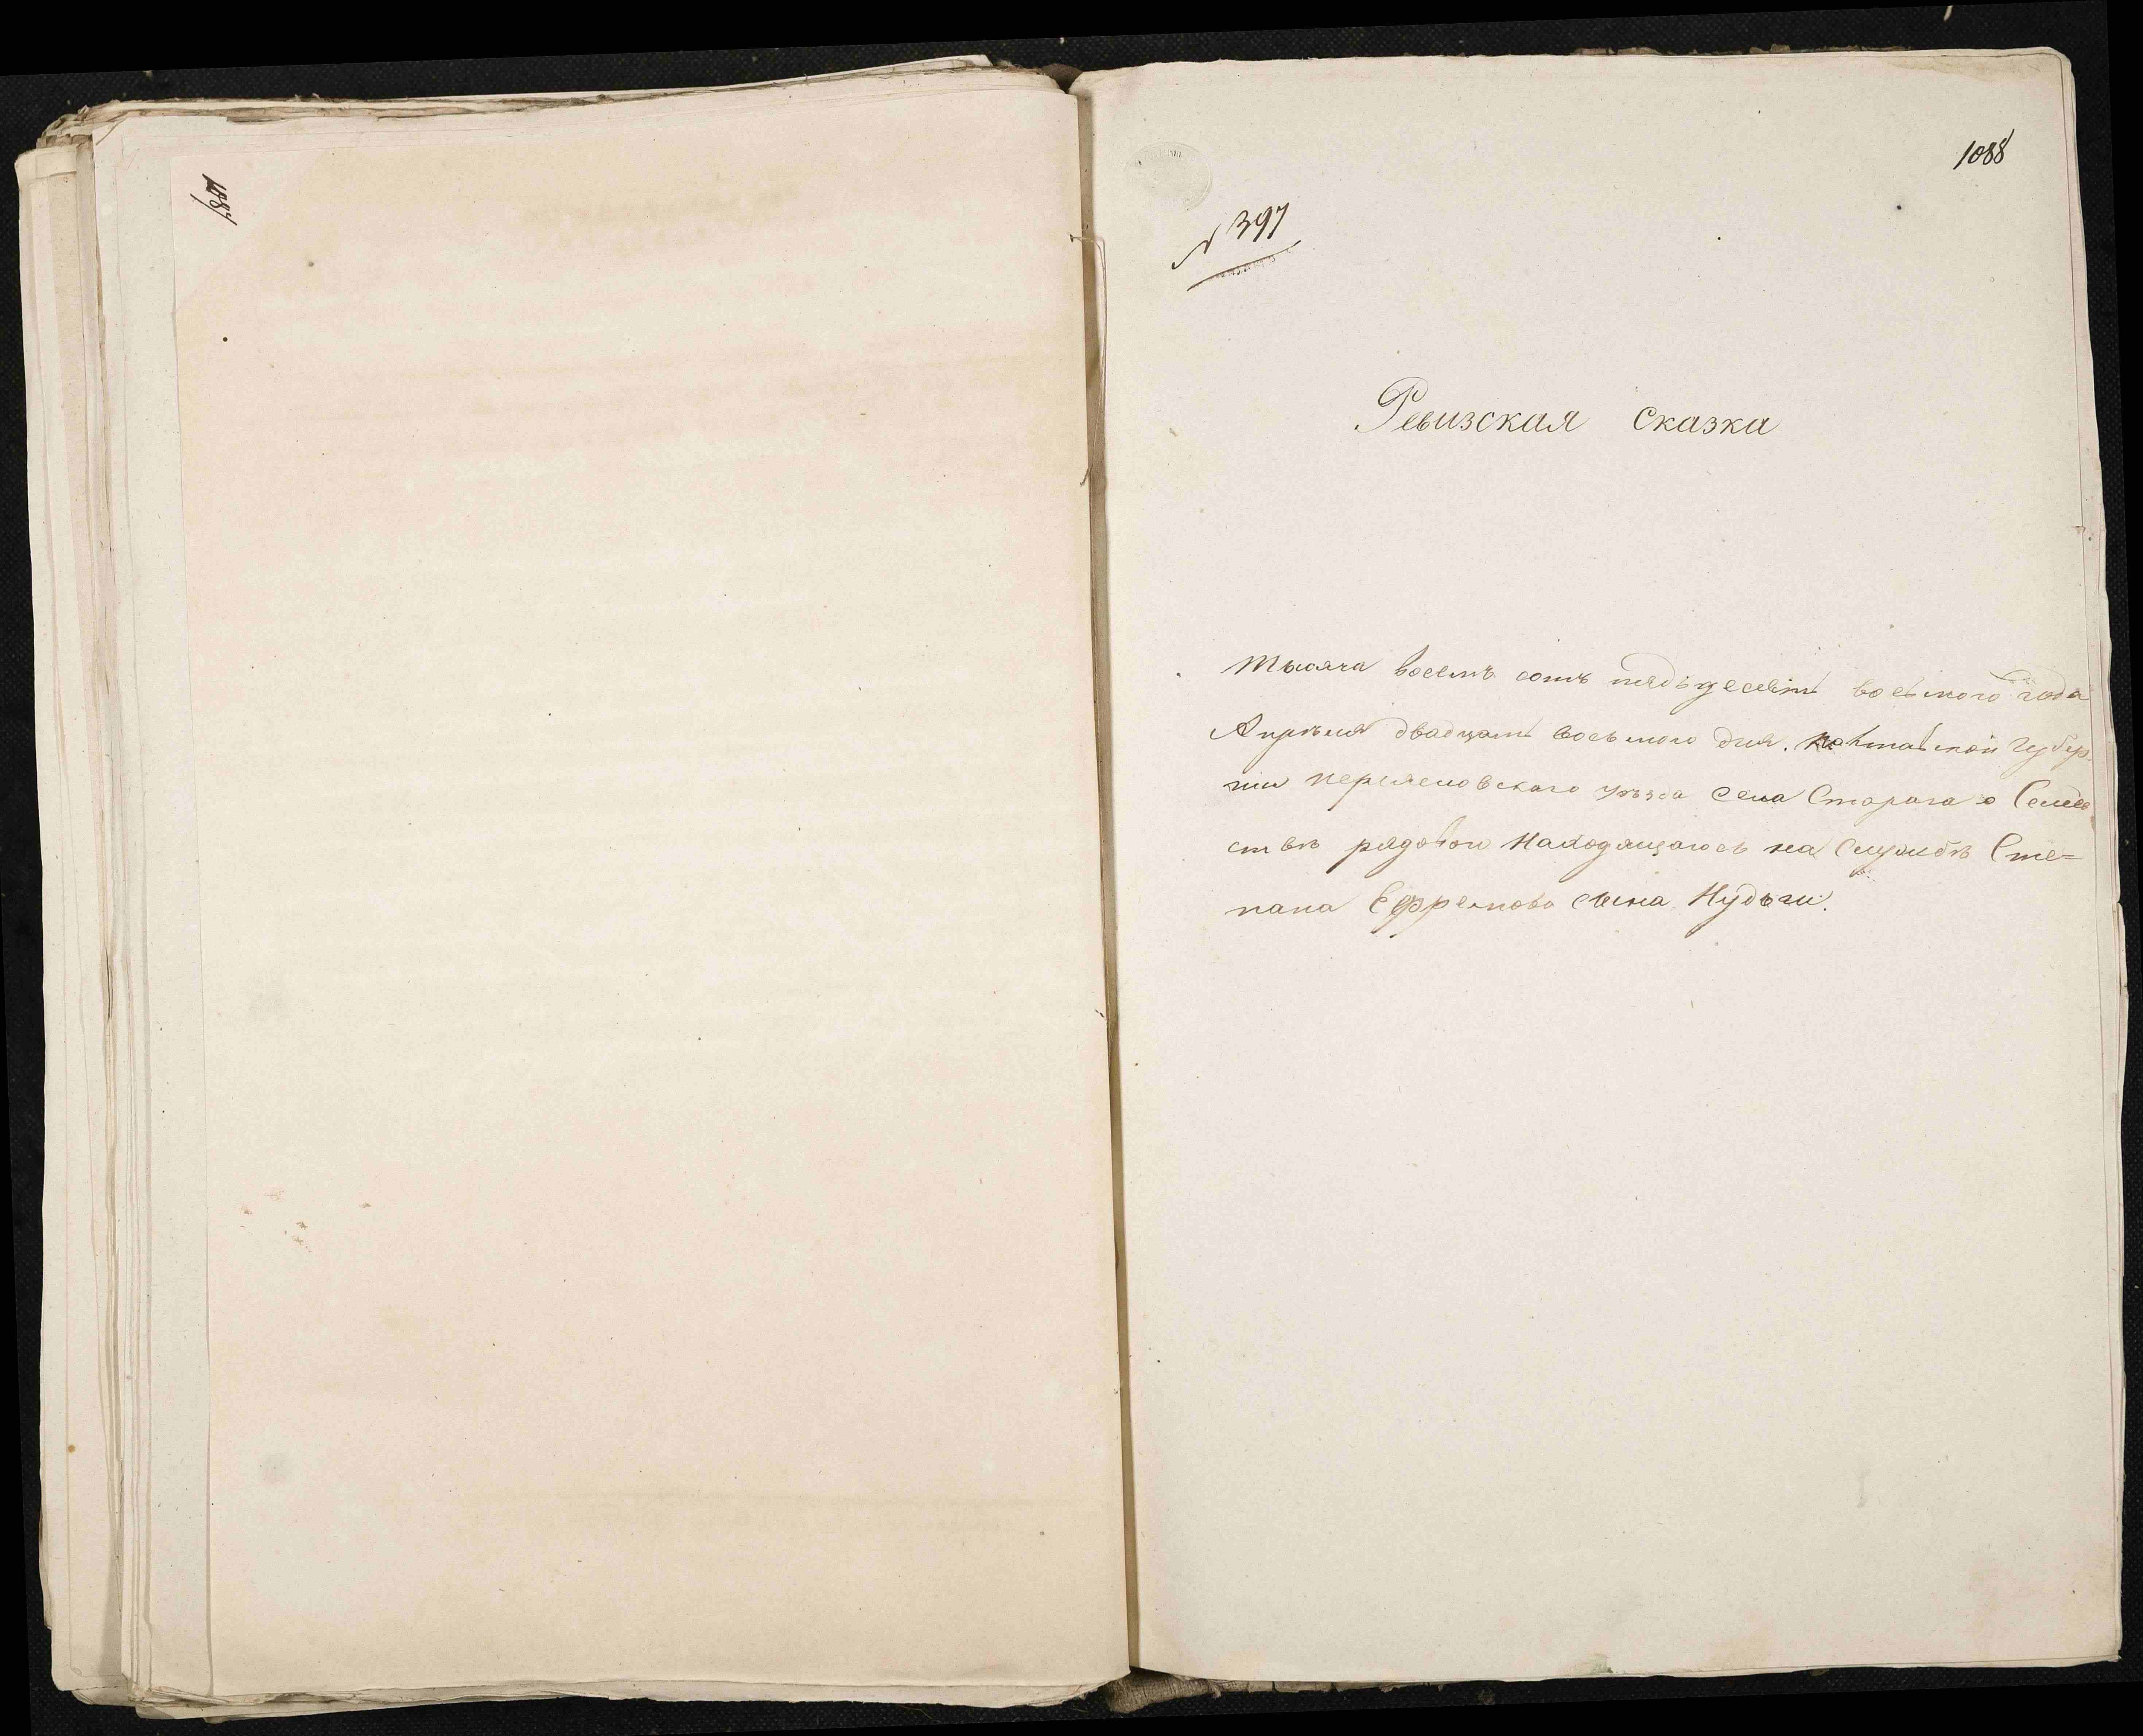 1087
1088
N 397
Ревизская сказка
Тысяча восемъ сотъ пядьдесятъ восьмого года
Апрѣля двадцать восьмого дня. Полтавской Губер
нии Переясловского уѣзда Села Старога о Семей
ствѣ рядового Находящагось на Службѣ Сте=
пана Ефремова сына Нудьги.